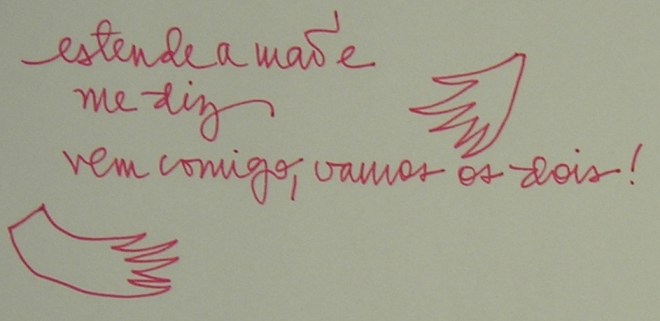 estende a mão e
me diz
vem comigo, vamos os dois!